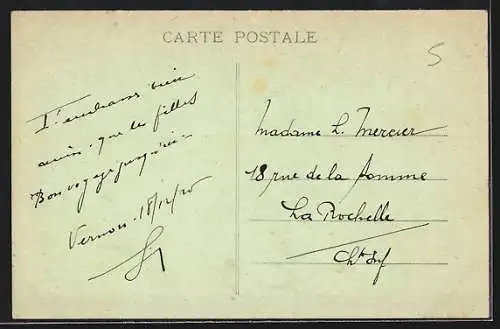 CARTE POSTALE
5
T'embrasse bien
ainsi que les filles
Bon voyage jusqu'ici
Vernon. 18/12/20
Madame L. Mercier
18 rue de la Pomme
La Rochelle
Chte Inf